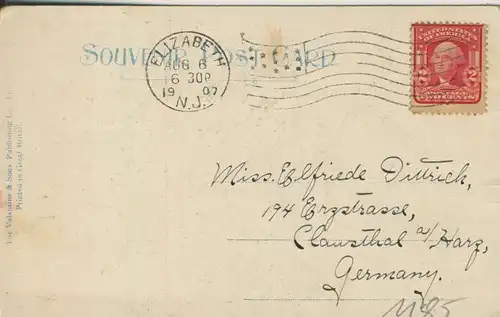 SOUVENIR POST CARD
ELIZABETH
AUG 6
6 30P
1907
N.J.
UNITED STATES OF AMERICA
2 2
POSTAGE
TWO CENTS
Miss. Elfriede Dittrich,
194 Erzstrasse,
Clausthal a/Harz,
Germany.
1185
The Valentine & Sons Publishing Co.
Printed in Great Britain